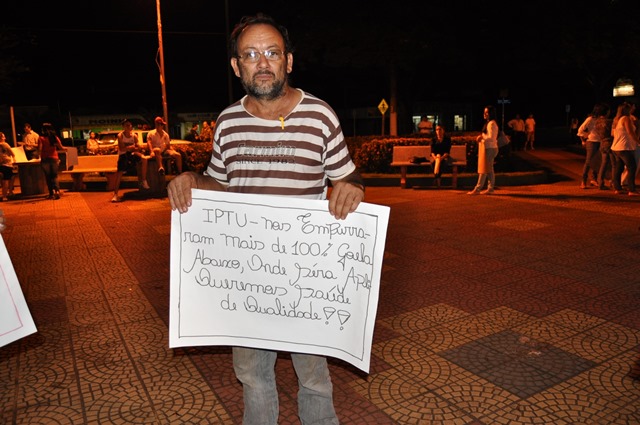 IPTU - nos Empurra-
ram mais de 100% Goela
Abaixo, Onde Será Aplc
Queremos Saúde
de Qualidade!!